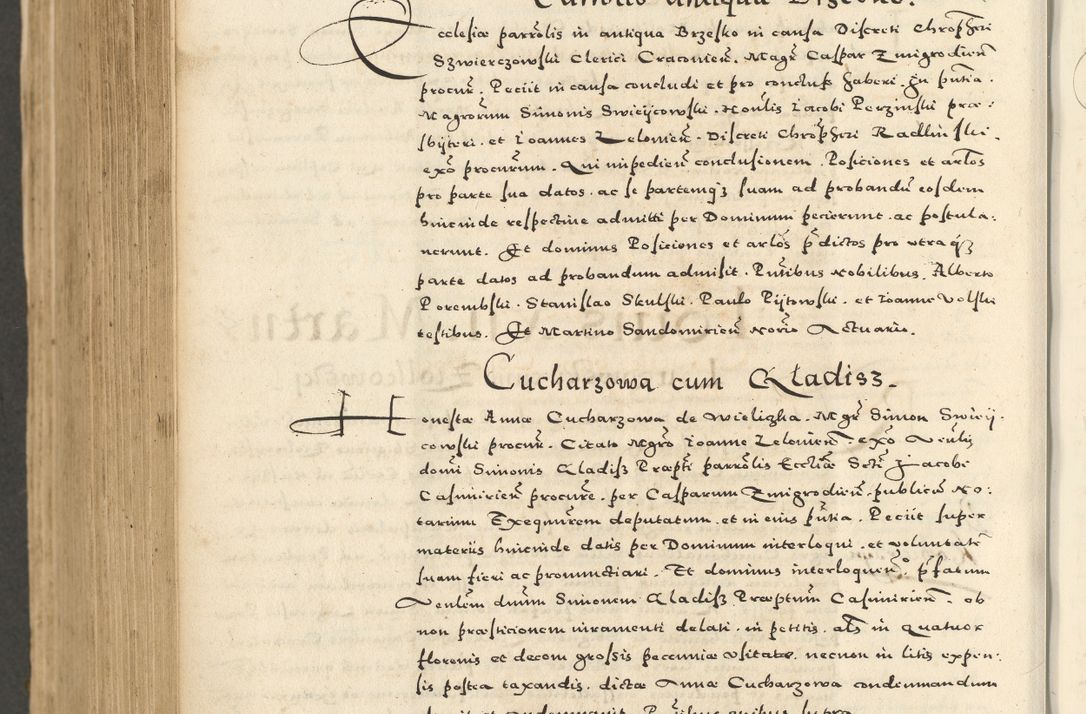 Ecclesiæ parrõlis in antiqua Brzesko in causa Discreti Chropheri
Szwierczowski Clerici Cracovieñ. Magr Caspar Zmigrodieñ
procur̃. Peciit in causa concludi et pro concluss haberi. In pñtia.
Magrorum Simonis Swieijcowski. Honlis Iacobi Perzinski præ:
sbijteri. et Ioannes Zelonieñ. Discreti Chropheri Radlinski.
exõ procurum. Qui impedieñ conclusionem. Posiciones et arlos
pro parte sua datos. ac se partemq3 suam ad probandũ eosdem
hincinde respective admitti per Dominum pecierunt. ac postula:
uerunt. Et dominus Posiciones et arlos p̃dictos pro utraq3
parte datos ad probandum admisit. Pñtibus Nobilibus. Alberto
Porembski. Stanislao Skulski. Paulo Pijtowski. et Ioanne Volski
testibus. Et Martino Sandomirieñ Norio Actuario.
Cucharzowa cum Gladisz.
Honestæ Annæ Cucharzowa de Wielizka. Mgr Simon Swieij.
cowski procur̃. Citato Mgro Ioanne Zelonieñ. exõ Venlis
domi Simonis Gladiss Præpti parrõlis Eccliæ Scti Jacobi
Casimirieñ procure. per Casparum Zmigrodieñ. publicũ No:
tarium Exequurem deputatum. et in eius pñtia. Peciit super
materiis hincinde datis per Dominum interloqui. et voluntatẽ
suam fieri ac pronunctiari. Et dominus interloqueñ. p̃fatum
Venlem dnum Simonem Gladiss Præptum Casimirieñ. ob
non præsticionem iuramenti delati. in petitis. als in quatuor
florenis et decem grossis pecuniæ usitatæ. necnon in litis expen:
sis postea taxandis. dictæ Annæ Cucharzowa condemnandum